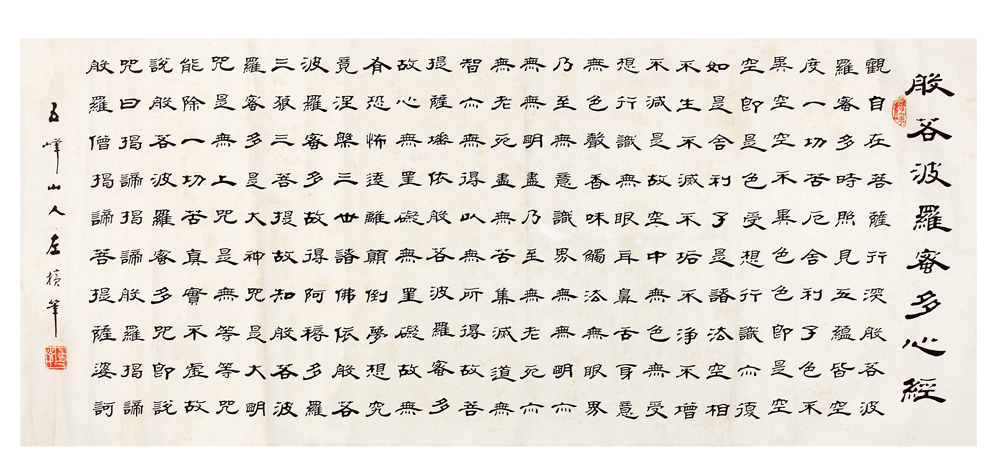 般若波羅蜜多心經
觀自在菩薩行深般若波
羅蜜多時照見五蘊皆空
度一切苦厄舍利子色不
異空空不異色色即是空
空即是色受想行識亦復
如是舍利子是諸法空相
不生不滅不垢不淨不增
不減是故空中無色無受
想行識無眼耳鼻舌身意
無色聲香味觸法無眼界
乃至無意識界無無明亦
無無明盡乃至無老死亦
無老死盡無苦集滅道無
智亦無得以無所得故菩
提薩埵依般若波羅蜜多
故心無罣礙無罣礙故無
有恐怖遠離顛倒夢想究
竟涅槃三世諸佛依般若
波羅蜜多故得阿耨多羅
三藐三菩提故知般若波
羅蜜多是大神咒是大明
咒是無上咒是無等等咒
能除一切苦真實不虛故
說般若波羅蜜多咒即說
咒曰揭諦揭諦般羅揭諦
般羅僧揭諦菩提薩婆訶
五峰山人左筆